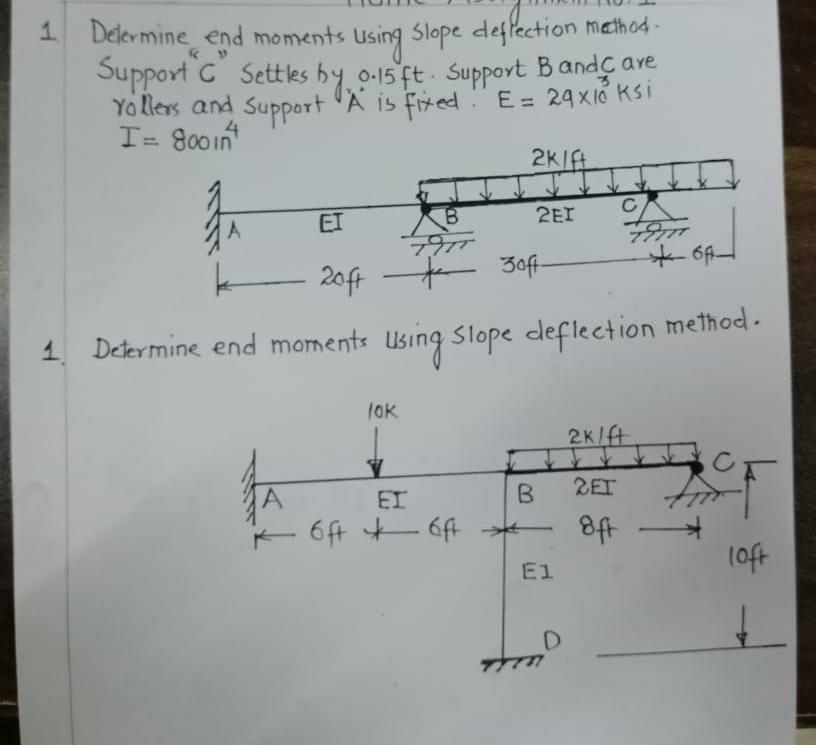 1 Determine end moments using slope deflection method.
Support "C" settles by 0.15ft. Support B and C are
rollers and support "A" is fixed. E = 29x10³ Ksi
I = 800in⁴
2K/ft
A EI B 2EI C
20ft 30ft 6ft
1. Determine end moments using slope deflection method.
10K
2K/ft
C
A EI B 2EI
6ft 6ft 8ft
10ft
EI
D